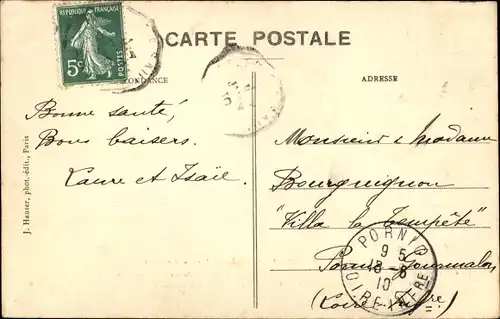 RÉPUBLIQUE FRANÇAISE
5c
POSTES
CARTE POSTALE
ADRESSE
J. Hauser, phot.-édit., Paris
Bonne santé,
Bons baisers.
Laure et Isaïe.
Monsieur & Madame
Bourguignon
"Villa la Tempête"
Pornic-Gourmalon
(Loire-Infre)
PORNIC
9 5
13-8
10
LOIRE-INFRE